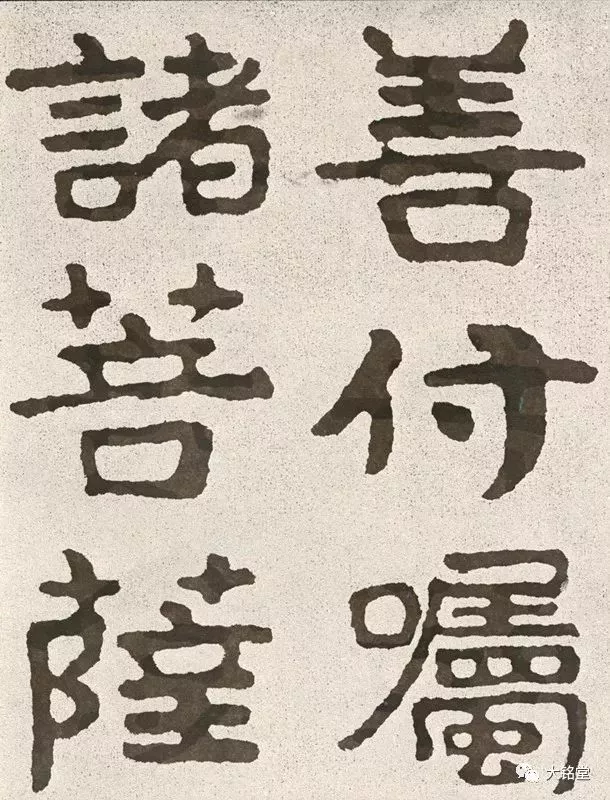 善付囑
諸菩薩
大铭堂